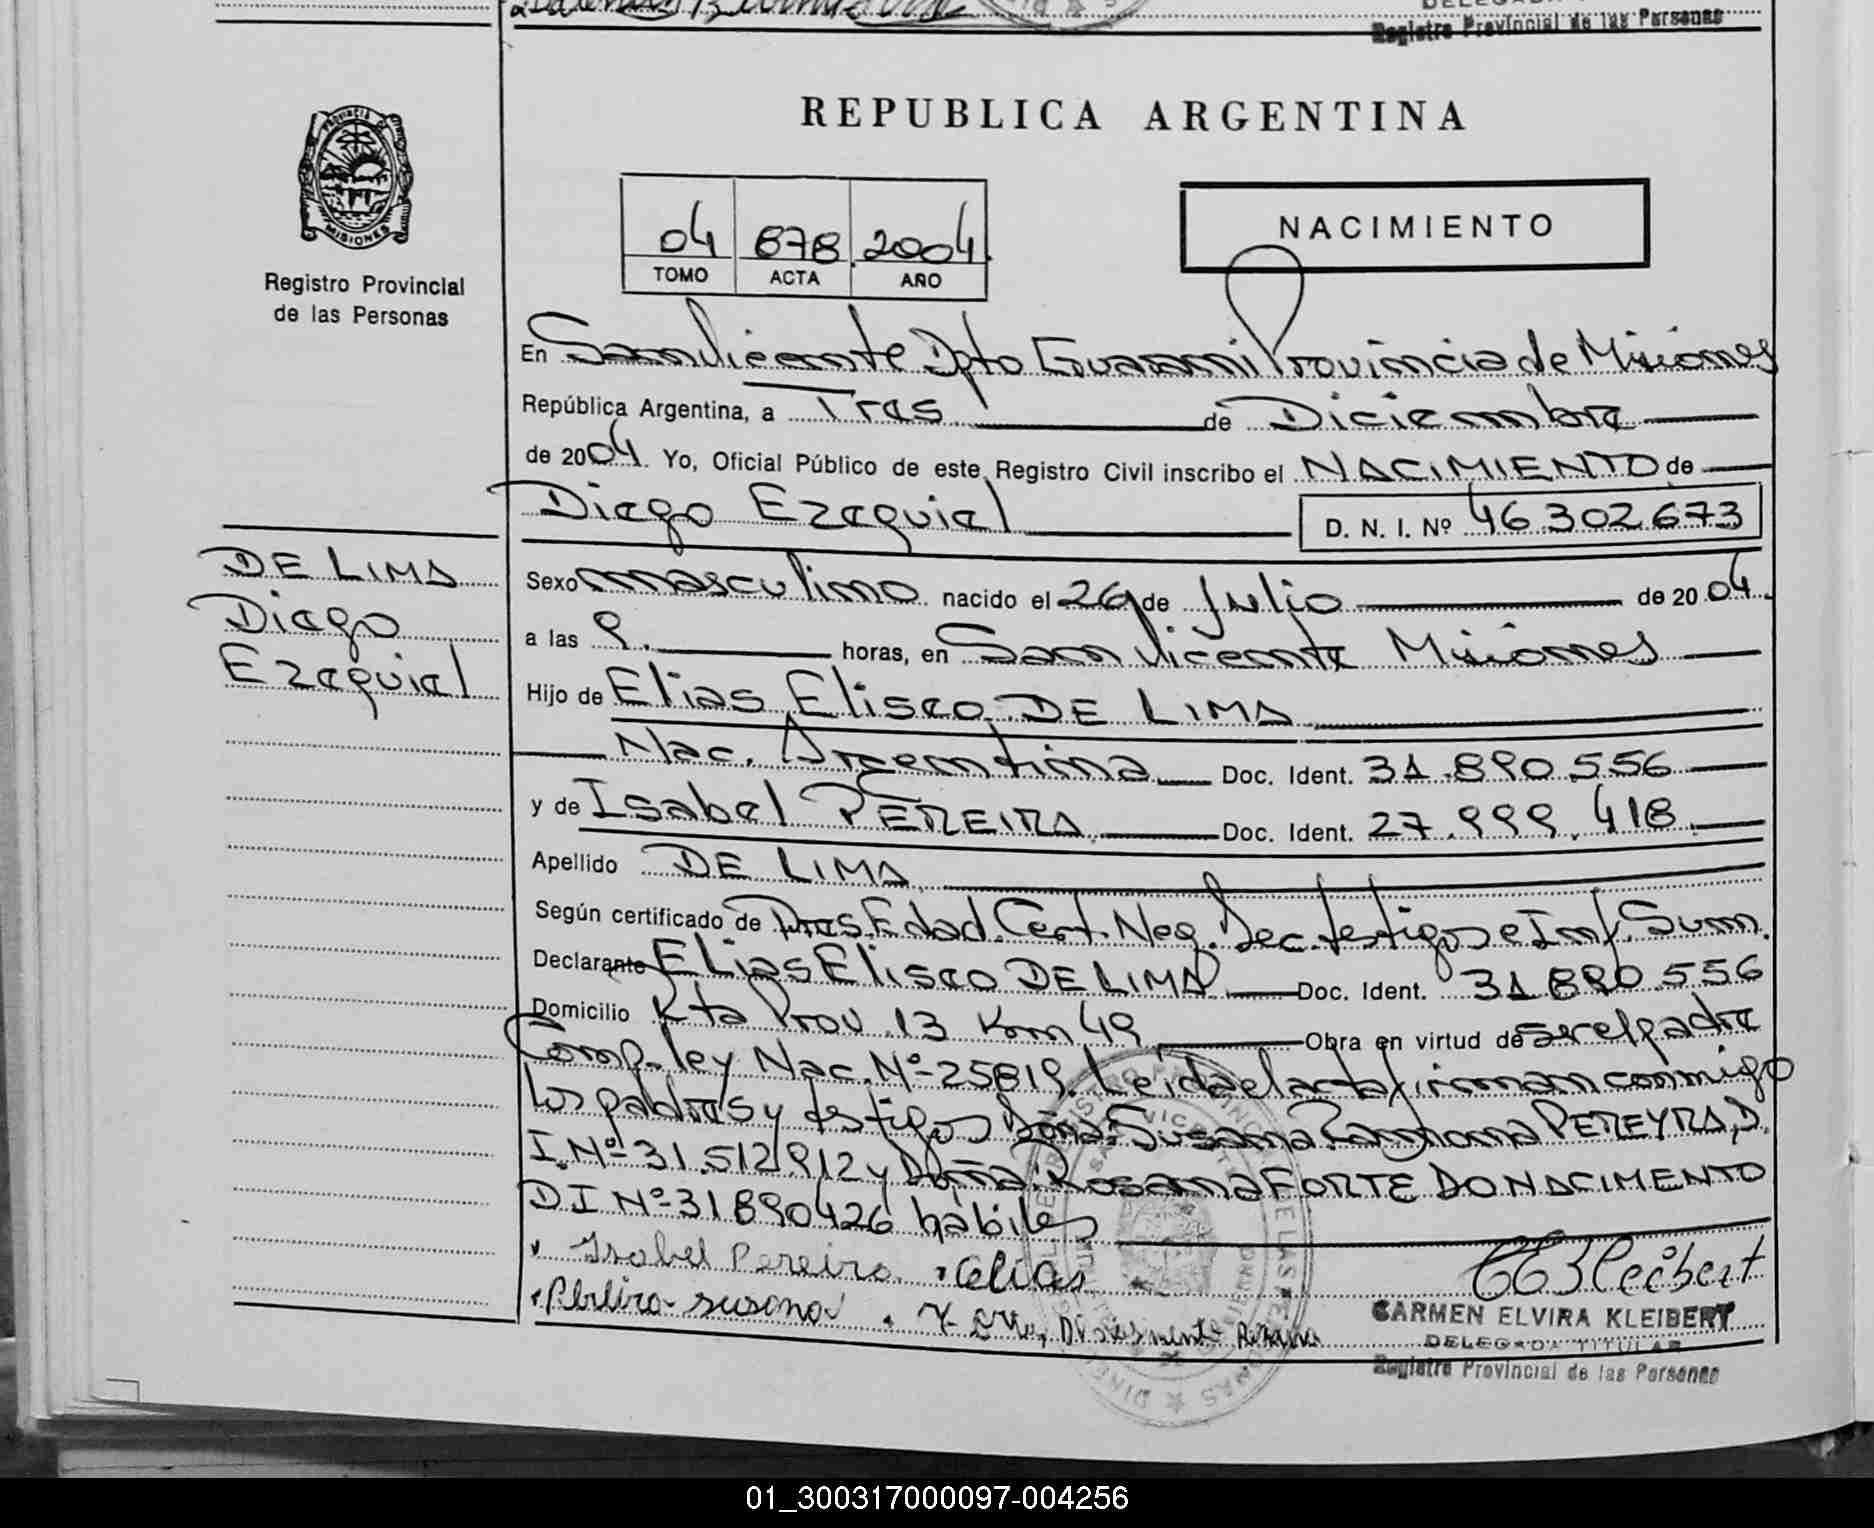 Registro Provincial de las Personas
REPUBLICA ARGENTINA
MISIONES
Registro Provincial
de las Personas
04 878 2004
TOMO ACTA AÑO
NACIMIENTO
En San Vicente Dpto Guarani Provincia de Misiones
República Argentina, a Tres de Diciembre
de 2004. Yo, Oficial Público de este Registro Civil inscribo el NACIMIENTO de
Diego Ezequiel D. N. I. Nº 46.302.673
DE LIMA
Diego
Ezequiel
Sexo masculino nacido el 26 de Julio de 2004.
a las 9. horas, en San Vicente Misiones
Hijo de Elias Eliseo DE LIMA
Nac. Argentina Doc. Ident. 31.890.556
y de Isabel PEREIRA Doc. Ident. 27.999.418
Apellido DE LIMA
Según certificado de Pres. Edad. Cert. Neg. Dec. testigos e Inf. Sum.
Declarante Elias Eliseo DE LIMA Doc. Ident. 31.890.556
Domicilio Rta Prov 13 Km 49 Obra en virtud de ser el padre
Comp. ley Nac. Nº 25819. Leida el acta firman conmigo
los padres y testigos Doña: Susana Ramona PEREYRA, D.
I. Nº 31.512.912 y Doña: Rosana FORTE DO NACIMENTO
DI Nº 31890426 hábiles
Isabel Pereira Elias
Pereira susana
CARMEN ELVIRA KLEIBERT
DELEGADA TITULAR
Registro Provincial de las Personas
01_300317000097-004256